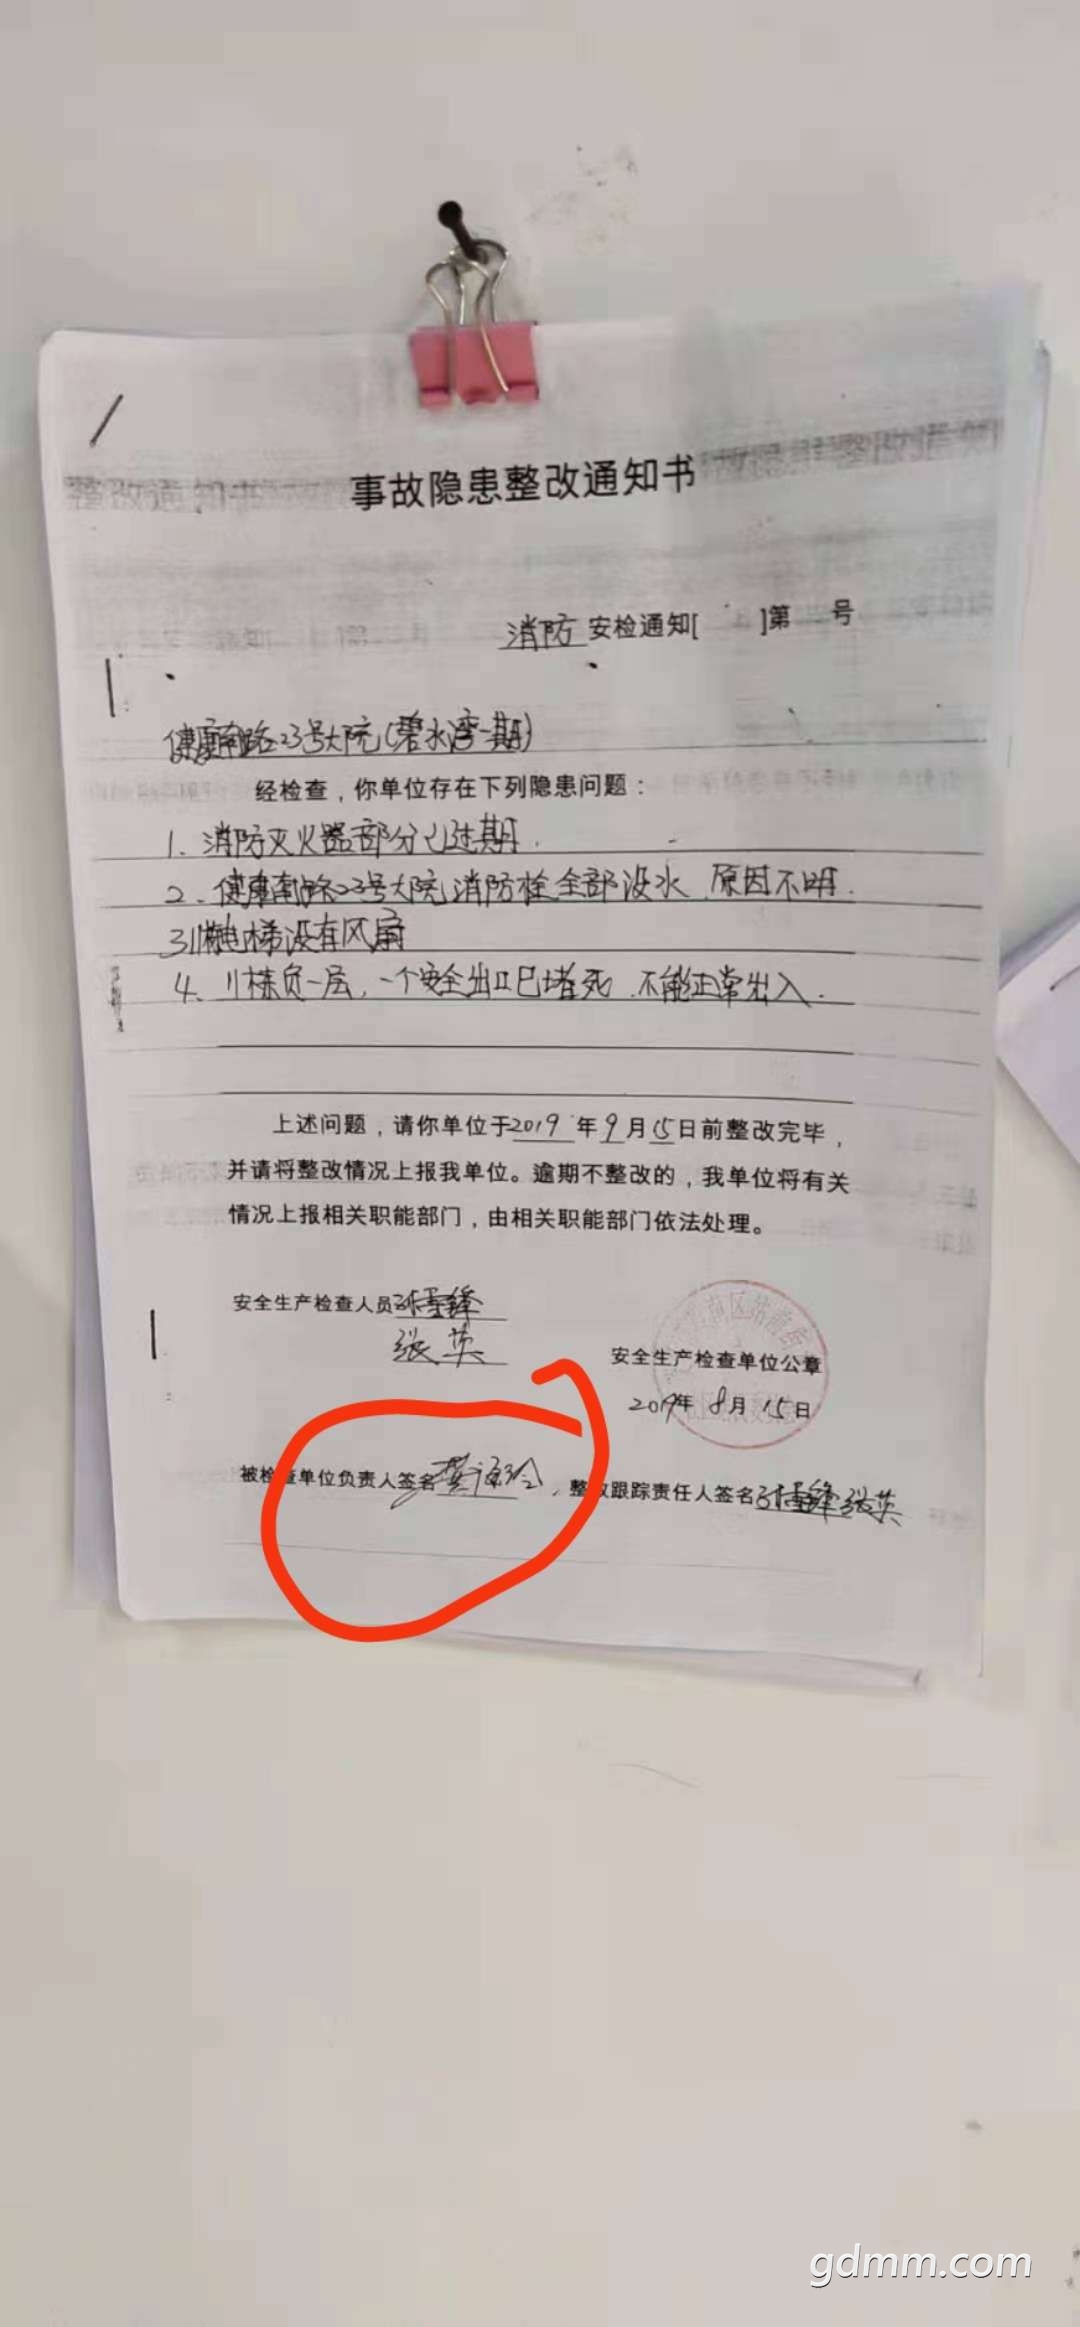 事故隐患整改通知书
消防 安检通知[ ]第 号
健康南路23号大院(碧水湾一期)
经检查，你单位存在下列隐患问题：
1、消防灭火器部分已过期.
2、健康南路23号大院消防栓全部没水、原因不明.
3、11栋电梯没有风扇
4、11栋负一层，一个安全出口已堵死、不能正常出入.
上述问题，请你单位于2019年9月15日前整改完毕，
并请将整改情况上报我单位。逾期不整改的，我单位将有关
情况上报相关职能部门，由相关职能部门依法处理。
安全生产检查人员
张英
安全生产检查单位公章
2019年8月15日
被检查单位负责人签名 ，整改跟踪责任人签名 张英
gdmm.com